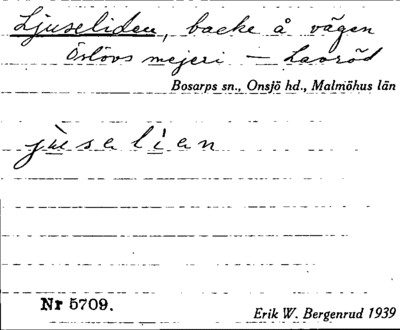 Ljuseliden, backe å vägen
Östövs mejeri — Laxröd
Bosarps sn., Onsjö hd., Malmöhus län
jùselían
Nr 5709.
Erik W. Bergenrud 1939